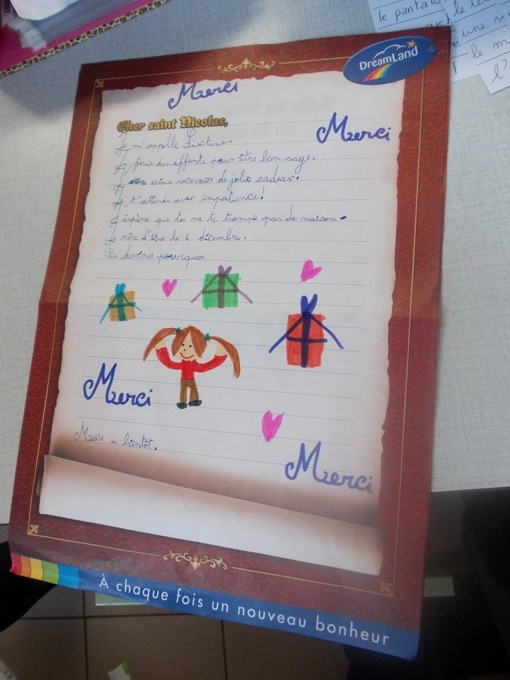 le pantalo
DreamLand
Merci
Cher saint Nicolas,
Merci
Je m'appelle
Je fais des efforts pour être bien sage.
Je recevoir de jolis cadeau.
Je t'attends avec impatience!
J'espère que tu ne te trompe pas de maison.
Je rêve d'être le 6 décembre.
Tu devines pourquoi
Merci
Merci a bientôt.
Merci
À chaque fois un nouveau bonheur